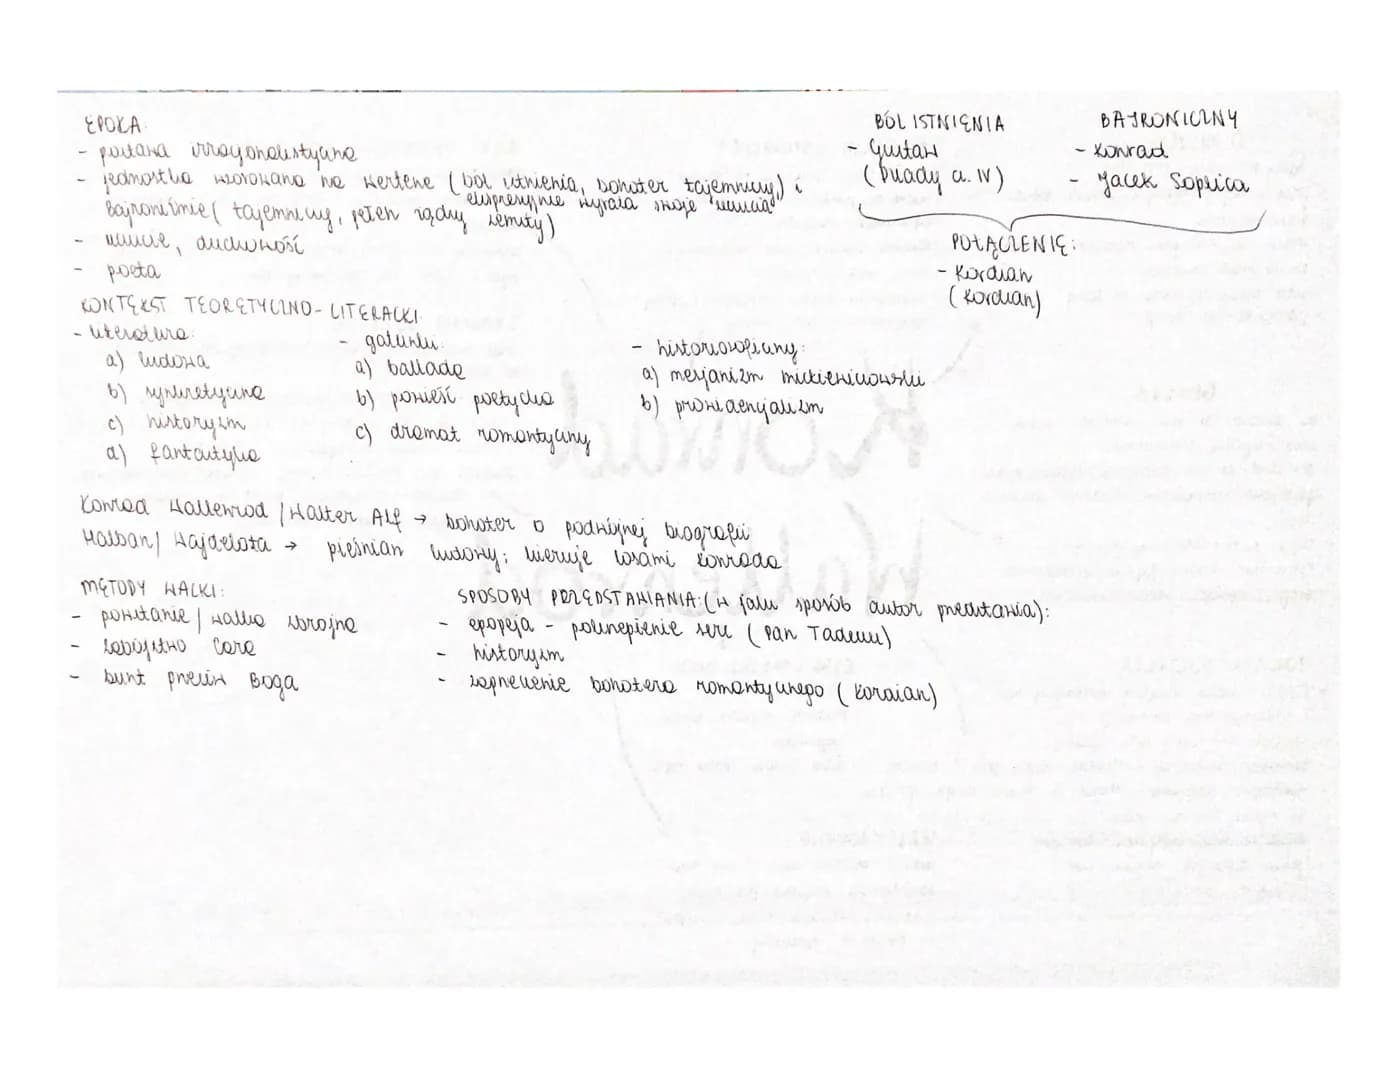 EPOKA:
- postawa irracjonalistyczna
- jednostka wzorowana na Werterze (ból istnienia, bohater tajemniczy,) i
ekspresyjnie wyraża swoje uczucia
bajroniźmie (tajemniczy, pełen rządzy zemsty)
- uczucie, duchowość
- poeta
BÓL ISTNIENIA
- Gustaw
(Dziady cz. IV)
BAJRONICZNY
- Konrad
- Jacek Soplica
POŁĄCZENIE:
- Kordian
(Kordian)
KONTEKST TEORETYCZNO-LITERACKI:
- literatura:
a) ludowa
b) synkretyczna
c) historyzm
d) fantastyka
- gatunki:
a) ballada
b) powieść poetycka
c) dramat romantyczny
- historiozoficzny:
a) mesjanizm mickiewiczowski
b) prowidencjalizm
Konrad Wallenrod / Walter Alf → bohater o podwójnej biografii
Halban / Wajdelota → pieśniarz ludowy; kieruje losami Konrada
METODY WALKI:
- powstanie / walka zbrojna
- zabójstwo Cara
- bunt przeciw Boga
SPOSOBY PRZEDSTAWIANIA: (w jaki sposób autor przedstawia):
- epopeja - pokrzepienie serc (Pan Tadeusz)
- historyzm
- zaprzeczenie bohatera romantycznego (Kordian)